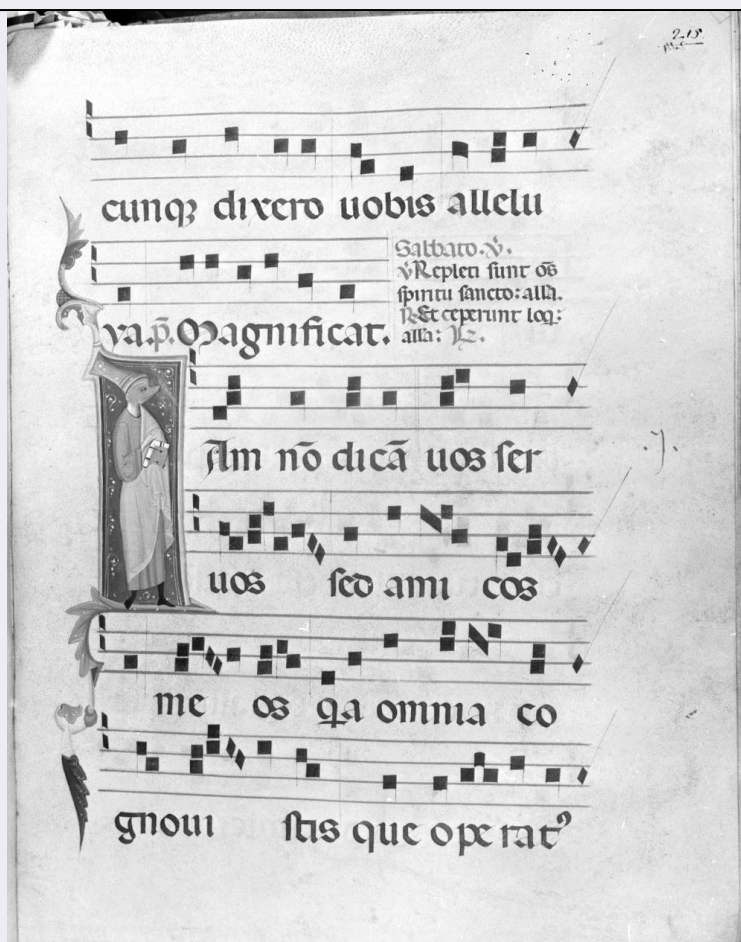 215
cunqꝫ dixero uobis allelu
Sabbato. ℣.
℣ Repleti sunt oēs
spiritu sancto: alla.
℟ Et ceperunt loq:
ya. p̄. Magnificat. alla:
Am nō dicā uos ser
uos sed ami cos
me os qa omnia co
gnoui stis que ope ratꝰ